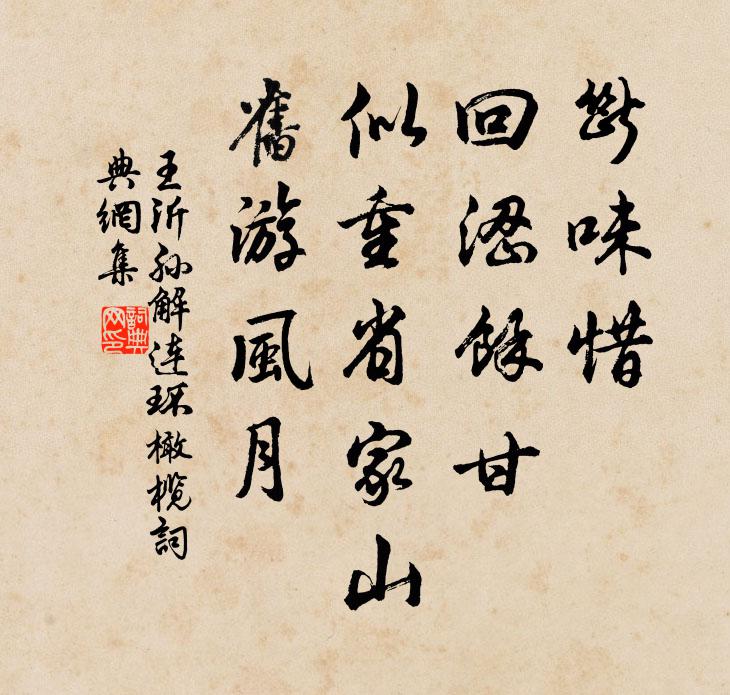 斷味惜
回澀餘甘
似重省家山
舊游風月
王沂孫解連環橄欖詞
典網集
詞典
网印